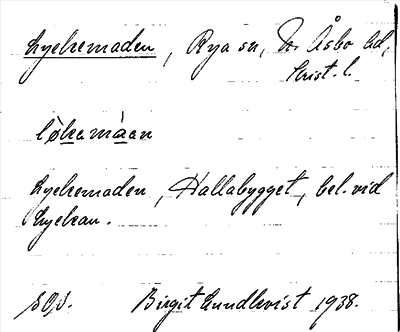 Lyckemaden, Rya sn, N. Åsbo hd,
Krist. l.
lỳkamàan
Lyckemaden, Hallabygget, bel. vid
Lyckan.
Birgit Lundkvist 1938.